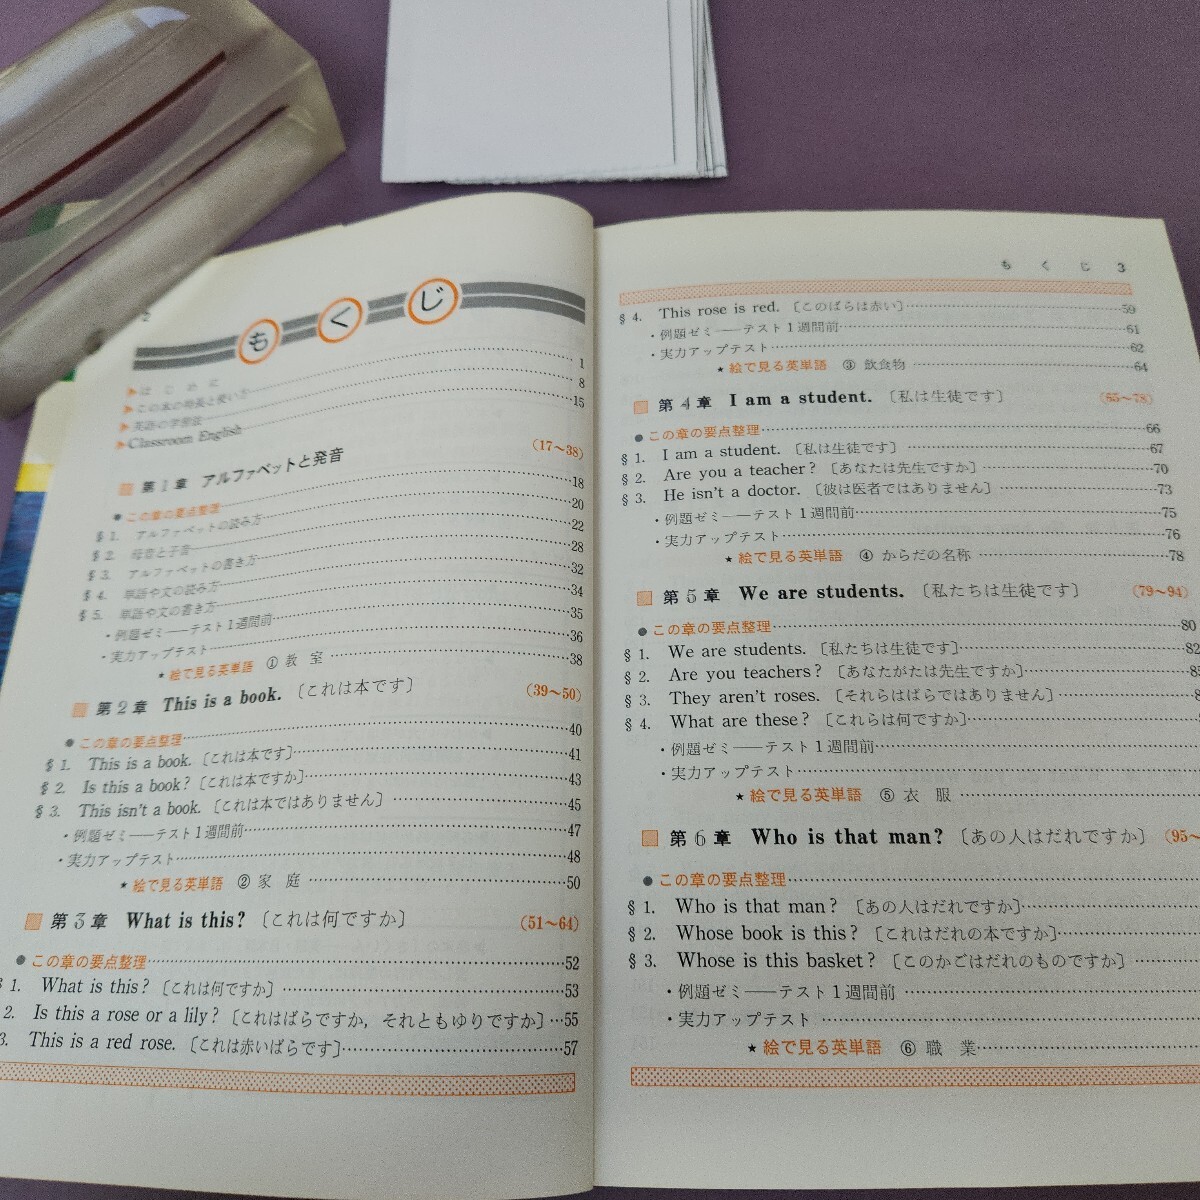 2
もくじ
▶はじめに 1
▶この本の特長と使い方 8
▶英語の学習法 15
▶Classroom English
第1章 アルファベットと発音 (17〜38)
●この章の要点整理 18
§1. アルファベットの読み方 20
§2. 母音と子音 22
§3. アルファベットの書き方 28
§4. 単語や文の読み方 32
§5. 単語や文の書き方 34
・例題ゼミ——テスト1週間前 35
・実力アップテスト 36
★絵で見る英単語 ① 教室 38
第2章 This is a book. 〔これは本です〕 (39〜50)
●この章の要点整理 40
§1. This is a book.〔これは本です〕 41
§2. Is this a book?〔これは本ですか〕 43
§3. This isn't a book.〔これは本ではありません〕 45
・例題ゼミ——テスト1週間前 47
・実力アップテスト 48
★絵で見る英単語 ② 家庭 50
第3章 What is this? 〔これは何ですか〕 (51〜64)
●この章の要点整理 52
§1. What is this?〔これは何ですか〕 53
2. Is this a rose or a lily?〔これはばらですか，それともゆりですか〕 55
3. This is a red rose.〔これは赤いばらです〕 57
もくじ 3
§4. This rose is red.〔このばらは赤い〕 59
・例題ゼミ——テスト1週間前 61
・実力アップテスト 62
★絵で見る英単語 ③ 飲食物 64
第4章 I am a student. 〔私は生徒です〕 (65〜78)
●この章の要点整理 66
§1. I am a student.〔私は生徒です〕 67
§2. Are you a teacher?〔あなたは先生ですか〕 70
§3. He isn't a doctor.〔彼は医者ではありません〕 73
・例題ゼミ——テスト1週間前 75
・実力アップテスト 76
★絵で見る英単語 ④ からだの名称 78
第5章 We are students. 〔私たちは生徒です〕 (79〜94)
●この章の要点整理 80
§1. We are students.〔私たちは生徒です〕 82
§2. Are you teachers?〔あなたがたは先生ですか〕
§3. They aren't roses.〔それらはばらではありません〕
§4. What are these?〔これらは何ですか〕
・例題ゼミ——テスト1週間前
・実力アップテスト
★絵で見る英単語 ⑤ 衣服
第6章 Who is that man? 〔あの人はだれですか〕 (95〜
●この章の要点整理
§1. Who is that man?〔あの人はだれですか〕
§2. Whose book is this?〔これはだれの本ですか〕
§3. Whose is this basket?〔このかごはだれのものですか〕
・例題ゼミ——テスト1週間前
・実力アップテスト
★絵で見る英単語 ⑥ 職業